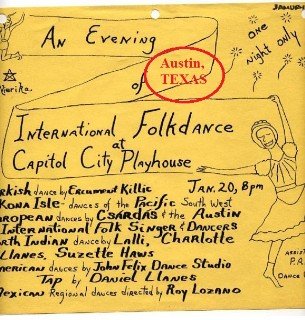 An Evening
of
Austin,
TEXAS
One
night only
Marika
International Folkdance
at
Capitol City Playhouse
rkish dance by Ercument Killic
JAN. 20, 8pm
Kona Isle - dances of the Pacific South West
uropean dances by CSARDAS & the Austin
International Folk Singers & Dancers
orth Indian dance by Lalli, Charlotte
LLANES, Suzette Haws
American dances by John Felix Dance Studio
TAP by Daniel Llanes
Mexican Regional dances directed by Roy Lozano
ASSIST
P.A.
DANCE